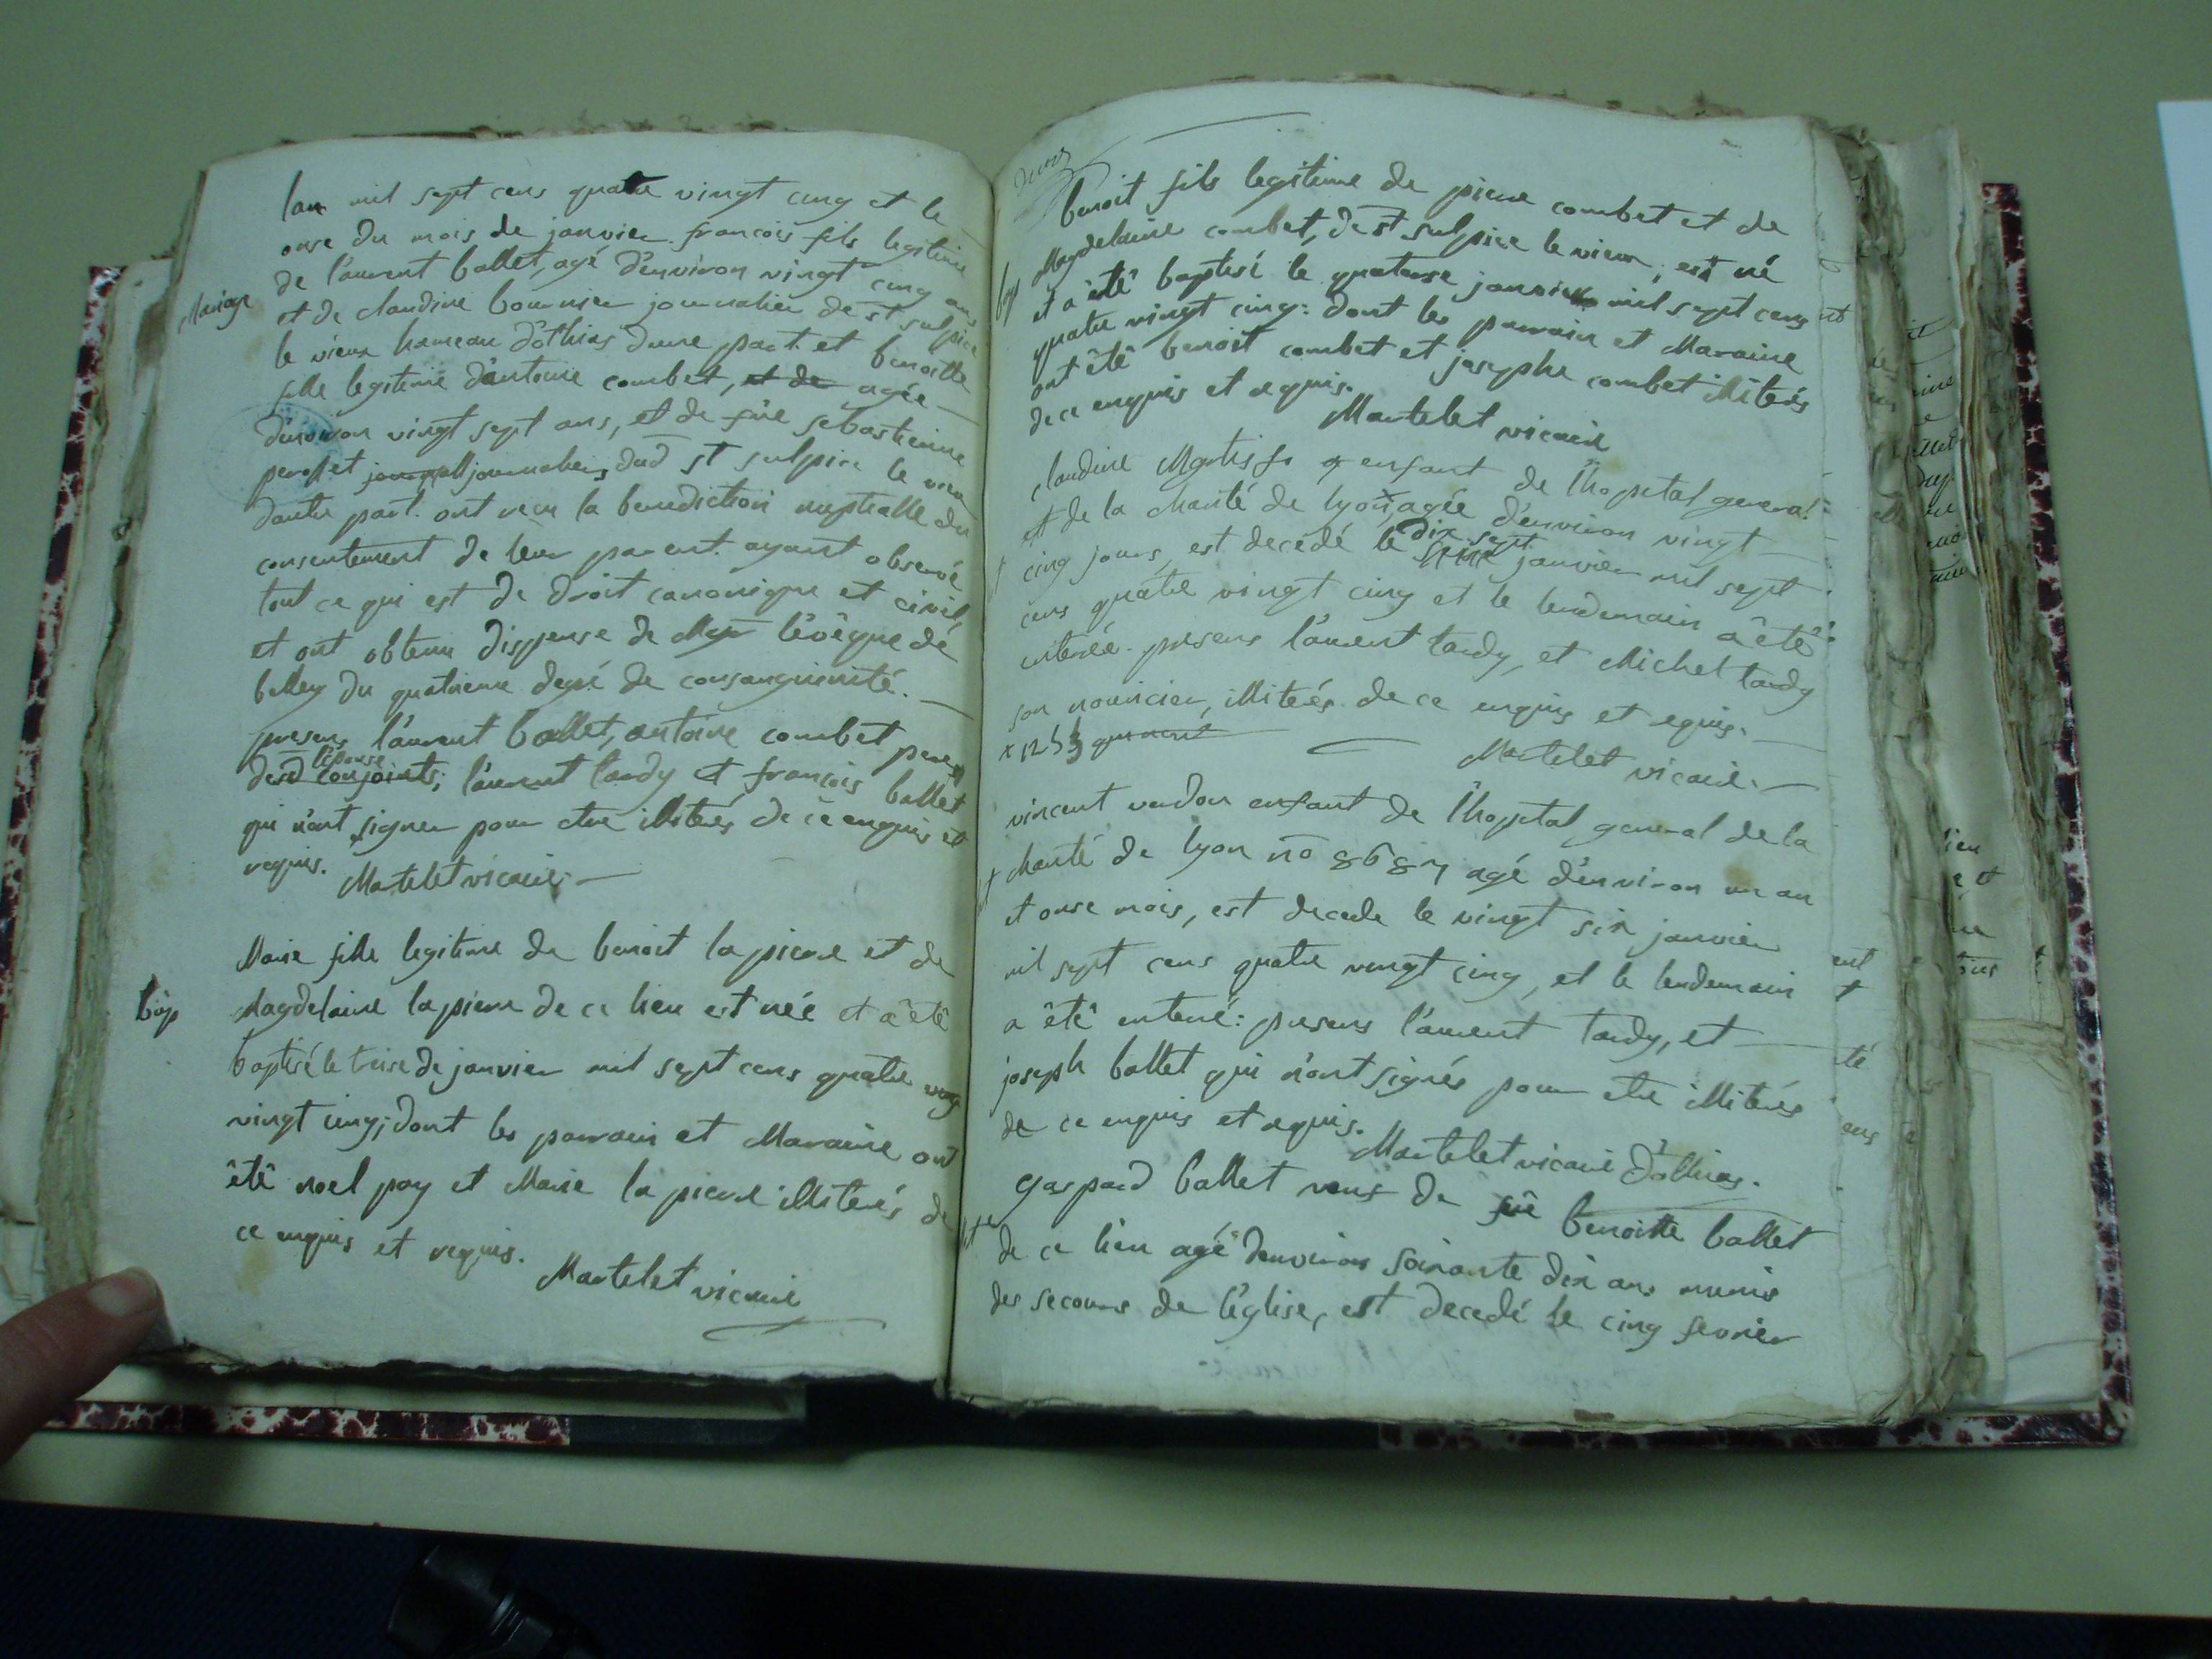 Mariage
lan mil sept cens quatre vingt cinq et le
onse du mois de janvier françois fils legitime
de l'aurent ballet, agé d'environ vingt cinq ans
et de claudine bournier journalier de st sulpice
le vieux hameau d'othias d'une part. et benoitte
fille legitime d'antoine combet, et de agée
d'environ vingt sept ans, et de fûe sebastienne
perosset journaliers dud st sulpice le vieux
dautre part. ont recu la benediction nuptialle du
consentement de leur parent. ayant observé
tout ce qui est de droit canonique et civil,
et ont obtenu dispense de Mgr l'évêque de
belley du quatrieme degré de consanguinité.
presens l'aurent ballet, antoine combet peres
l'epouse
desd conjoints; l'aurent tardy et françois ballet
qui n'ont signer pour etre illiterés de ce enquis et
requis. Martelet vicaire
bap
Marie fille legitime de benoit la pierre et de
Magdelaine la pierre de ce lieu est née et a êtê
baptisé le treise de janvier mil sept cens quatre ving
vingt cinq; dont les parrain et Maraine ont
êtê noel pay et Marie la pierre illiterés de
ce enquis et requis.
Martelet vicaire
bap
benoit fils legitime de pierre combet et de
Magdelaine combet, de st sulpice le vieux, est né
et a êtê baptisé le quatorse janvier mil sept cens
quatre vingt cinq: dont les parrain et Maraine
ont êtê benoit combet et josephe combet illiterés
de ce enquis et requis.
Martelet vicaire
claudine enfant de l'hopital general
et de la charité de lyon, agée d'environ vingt
dix sept
cinq jours, est decedé le janvier mil sept
cens quatre vingt cinq et le lendemain a êtê
enterée. presens l'aurent tardy, et Michel tardy
son nouricier, illiterés de ce enquis et requis.
Martelet vicaire.
vincent verdon enfant de l'hopital general de la
charité de lyon nō 8687 agé d'environ un an
et onse mois, est decede le vingt six janvier
mil sept cens quatre vingt cinq, et le lendemain
a êtê enteré: presens l'aurent tardy, et
joseph ballet qui n'ont signés pour etre illiterés
de ce enquis et requis.
Martelet vicaire d'othias.
gaspard ballet veuf de fûe benoitte ballet
de ce lieu agé denviron soixante dix ans munis
des secours de l'église, est decedé le cinq fevrier